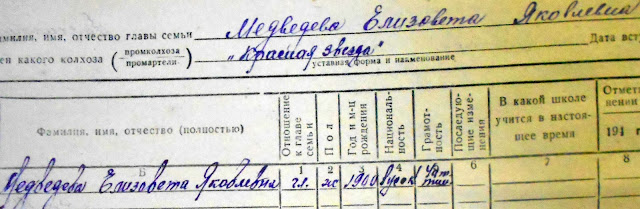 Фамилия, имя, отчество главы семьи Медведева Елизовета Яковлевна
ен какого колхоза (промколхоза промартели) „Красная звезда" Дата вст
уставная форма и наименование
Фамилия, имя, отчество (полностью) Отношение к главе семьи Пол Год и м-ц рождения Национальность Грамотность Последующие изменения В какой школе учится в настоящее время Отмет нении 194
Б 1 2 3 4 5 6 7 8
Медведева Елизовета Яковлевна гл. ж 1900 русск